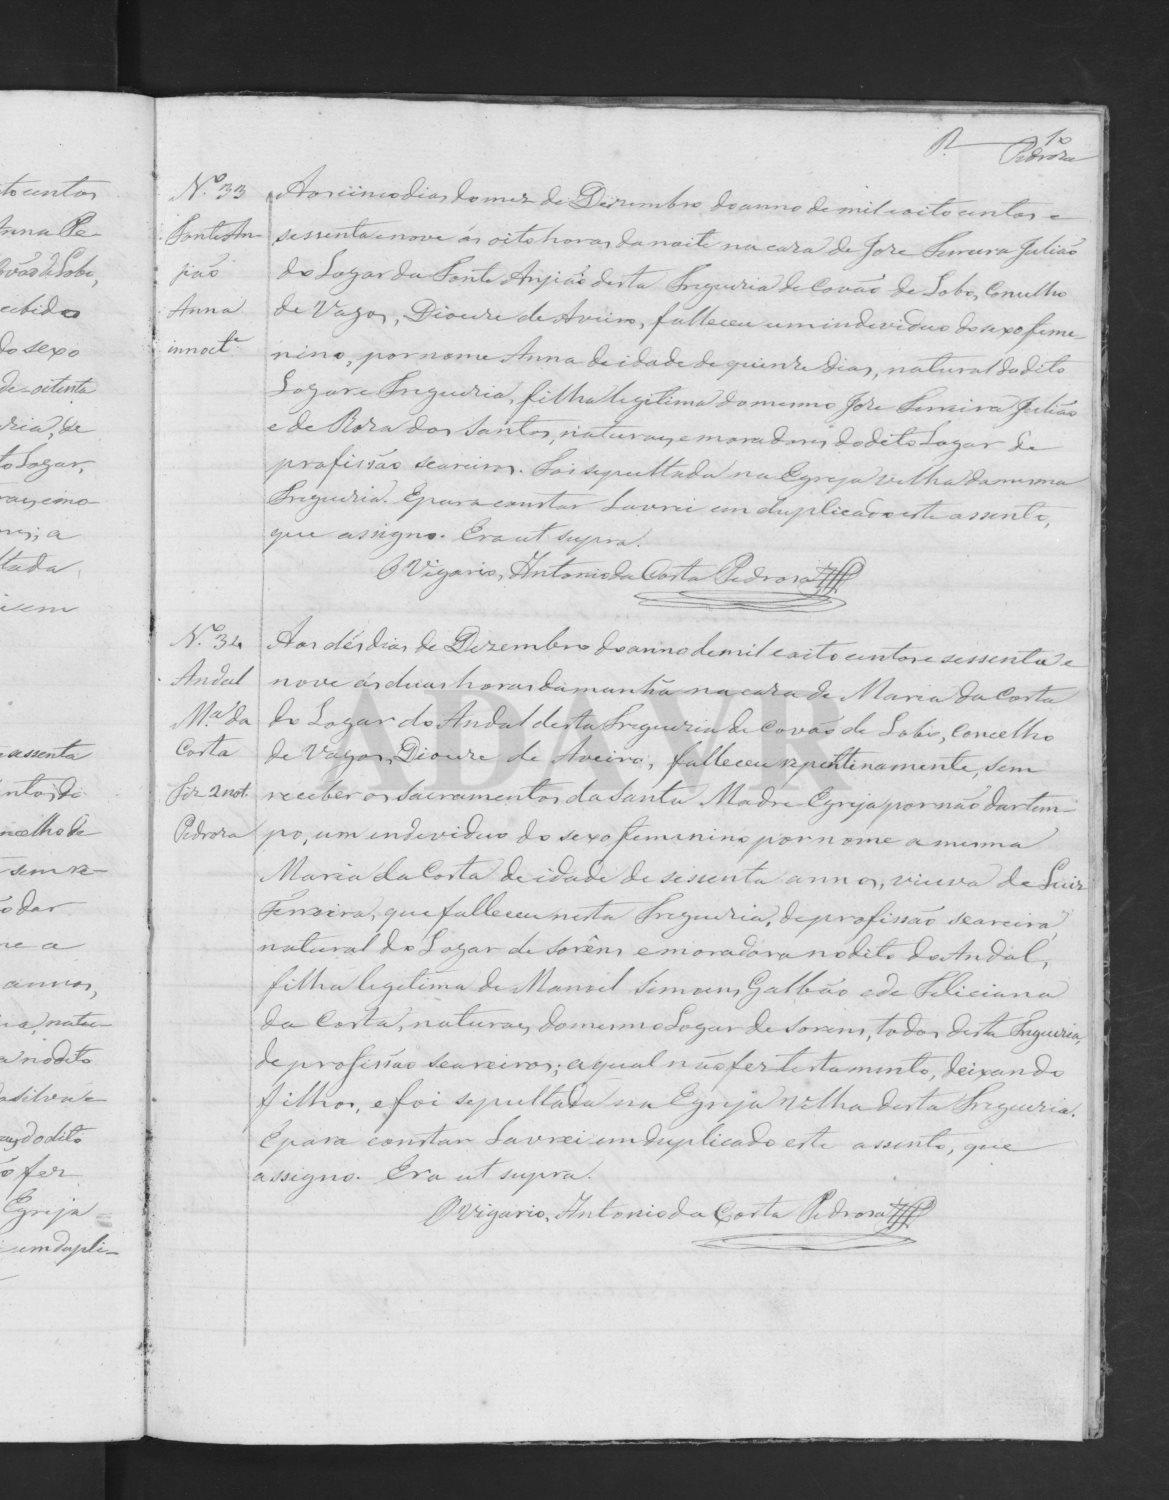 R. 10
Pedroza
N.º 33
Fonte An-
jião
Anna
innocte
Aos cinco dias do mez de Dezembro do anno de mil e oito centos e
sessenta e nove ás oito horas da noite na caza de Joze Ferreira Julião
do Logar da Fonte Anjião desta Freguezia de Covão de Lobo, Conselho
de Vagos, Dioceze de Aveiro, falleceu um individuo do sexo feme-
nino, por nome Anna de idade de quinze dias, natural do dito
Logar e Freguezia, filha legitima do mesmo Joze Ferreira Julião
e de Roza dos Santos, naturaes e moradores do dito Logar de
profissão seareiros. Foi sepultada na Egreja velha da mesma
Freguezia. E para constar Lavrei em duplicado este assento,
que assigno. Era ut supra.
O Vigario, Antonio da Costa Pedroza
N.º 34
Andal
M.ª da
Costa
Fez 2 not.
Pedroza
Aos dés dias de Dezembro do anno de mil e oito centos e sessenta e
nove ás duas horas da manhã na caza de Maria da Costa
do Logar do Andal desta Freguezia de Covão de Lobo, Concelho
de Vagos, Dioceze de Aveiro, falleceu repentinamente, sem
receber os Sacramentos da Santa Madre Egreja por não dar tem-
po, um endeviduo do sexo femenino por nome a mesma
Maria da Costa de idade de sessenta annos, viuva de Luiz
Ferreira, que falleceu nesta Freguezia, de profissão seareira,
natural do Logar de Sorêns e moradora no dito do Andal,
filha legitima de Manoel Simoens Galbão e de Feliciana
da Costa, naturaes do mesmo Logar de Sorens, todos desta Freguezia,
de profissão seareiros; a qual não fez testamento, deixando
filhos, e foi sepultada na Egreja velha desta Freguezia.
E para constar Lavrei em duplicado este assento, que
assigno. Era ut supra.
O Vigario, Antonio da Costa Pedroza
ADAVR